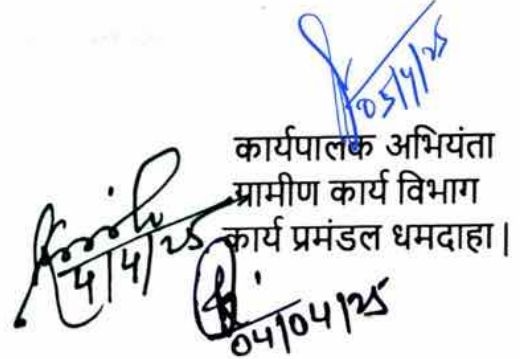 05/4/25
कार्यपालक अभियंता
ग्रामीण कार्य विभाग
कार्य प्रमंडल धमदाहा|
4/4/25
04/04/25